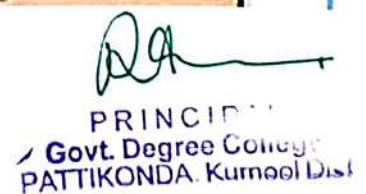 PRINCIP
Govt. Degree College
PATTIKONDA. Kurnool Dist